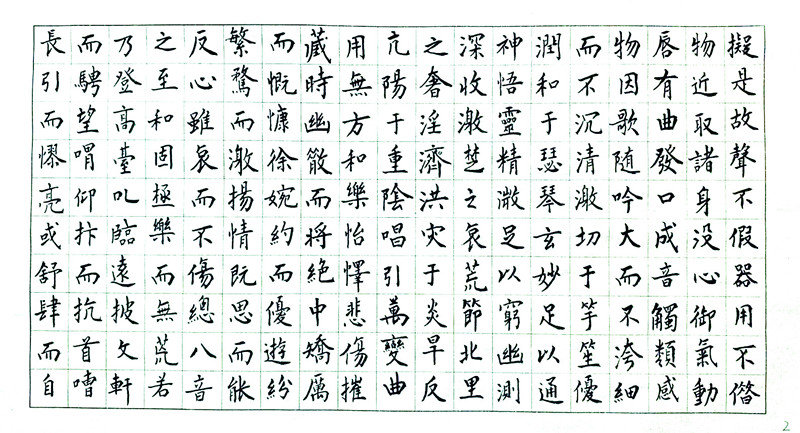 擬是故聲不假器用不僭
物近取諸身没心御氣動
唇有曲發口成音觸類感
物因歌随吟大而不洿細
而不沉清激切于竽笙優
潤和于瑟琴玄妙足以通
神悟靈精微足以窮幽測
深收激楚之哀荒節北里
之奢淫濟洪灾于炎旱反
亢陽于重陰唱引萬變曲
用無方和樂怡懌悲傷摧
藏時幽散而將絶中矯厲
而慨慷徐婉約而優遊紛
繁騖而激揚情既思而能
反心雖哀而不傷總八音
之至和固極樂而無荒若
乃登高臺以臨遠披文軒
而騁望喟仰抃而抗首嘈
長引而憀亮或舒肆而自
2